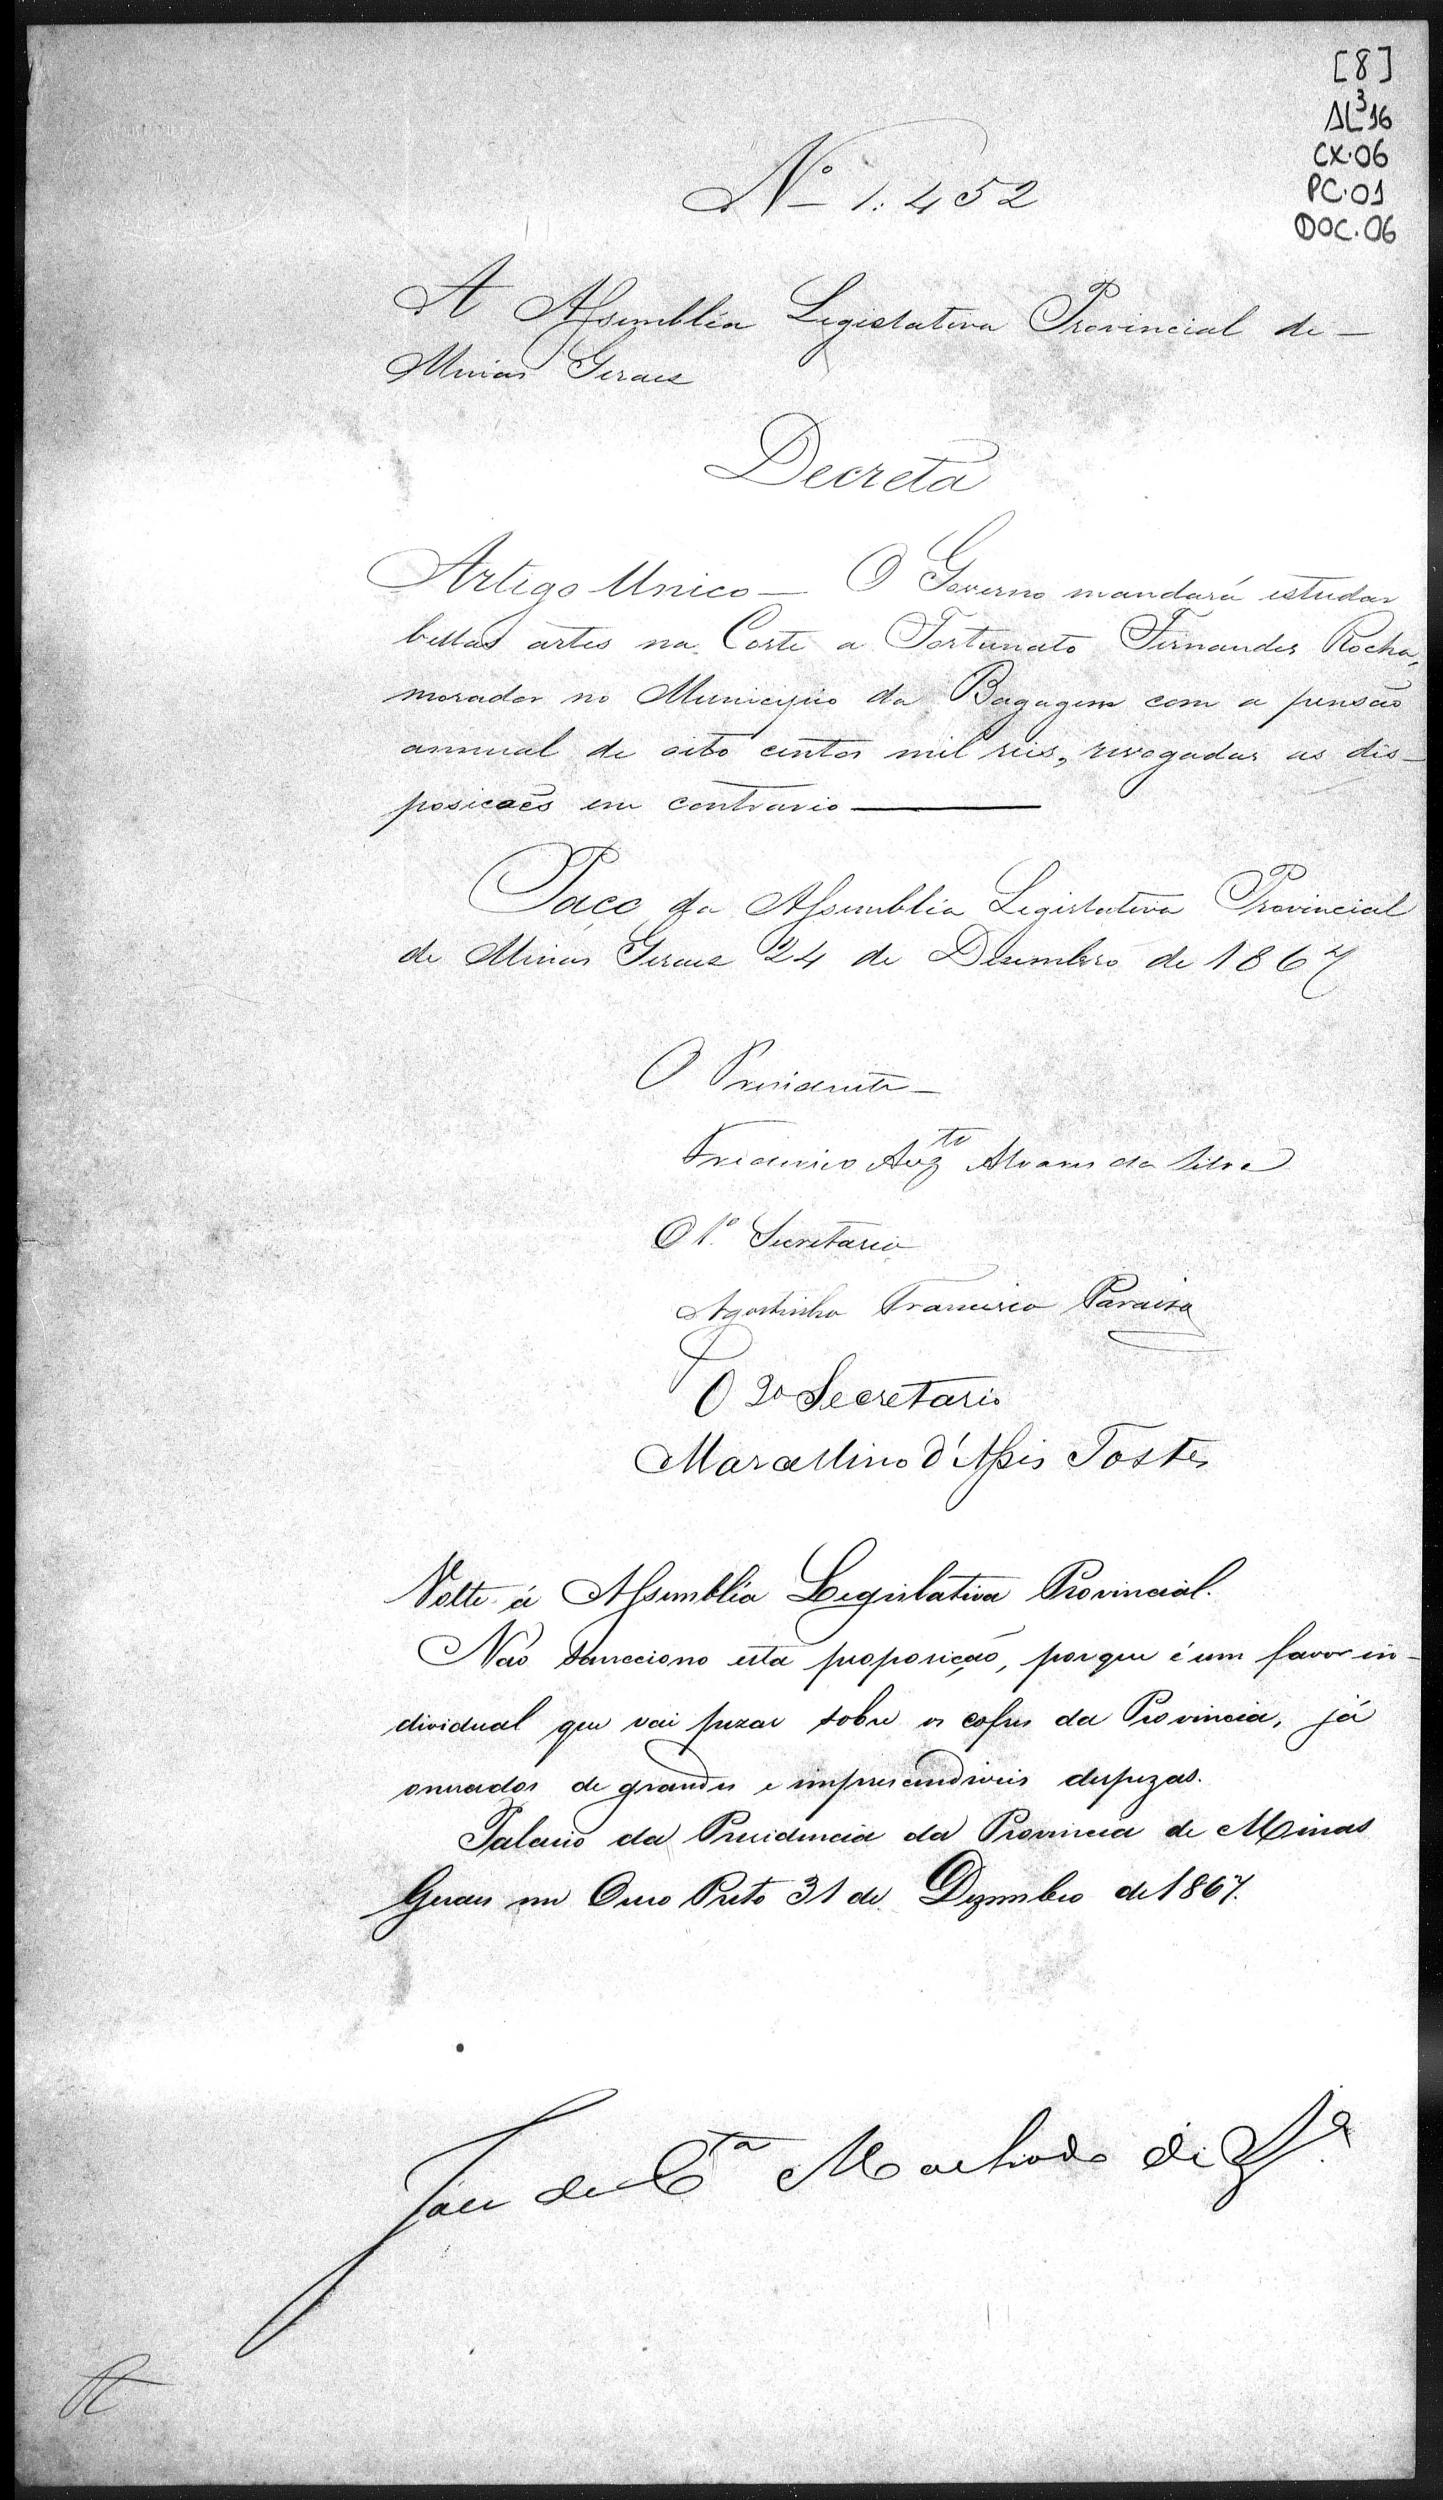 [8]
AL³16
CX.06
PC.01
DOC.06
Nº 1:452
A Assembléa Legislativa Provincial de —
Minas Geraes
Decreta
Artigo Unico — O Governo mandará estudar
bellas artes na Corte a Fortunato Fernandes Rocha,
morador no Municipio da Bagagem com a pensão
annual de oito centos mil reis, revogadas as dis-
posicoẽs em contrario —
Paço da Assembléa Legislativa Provincial
de Minas Geraes 24 de Desembro de 1867
O Presidente —
Frederico Augto Alvares da Silva
O 1º Secretario
Agostinho Francisco Paraiso
O 2º Secretario
Marcellino d'Assis Tostes
Volte á Assembléa Legislativa Provincial.
Não sancciono esta proposição, porque é um favor in-
dividual que vai pezar sobre os cofres da Provincia, já
onerados de grandes e imprescindiveis despezas.
Palacio da Presidencia da Provincia de Minas
Geraes em Ouro Preto 31 de Dezembro de 1867.
José da Cta Machado de Sza